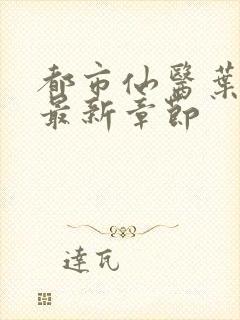 都市仙醫葉
最新章節
達瓦